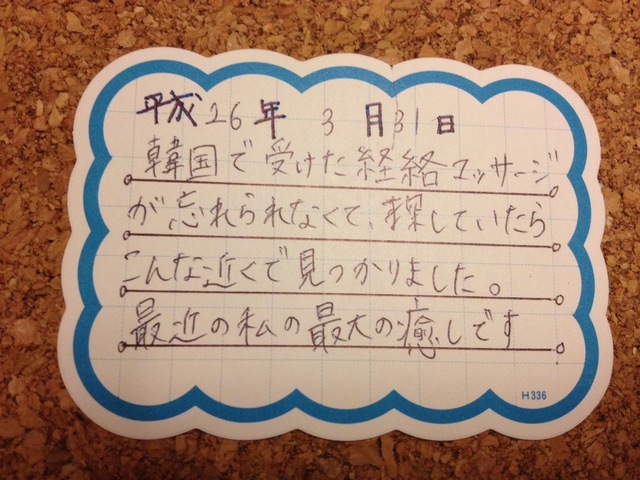 平成26年 3月31日
韓国で受けた経絡マッサージ
が忘れられなくて、探していたら
こんな近くで見つかりました。
最近の私の最大の癒しです
H336